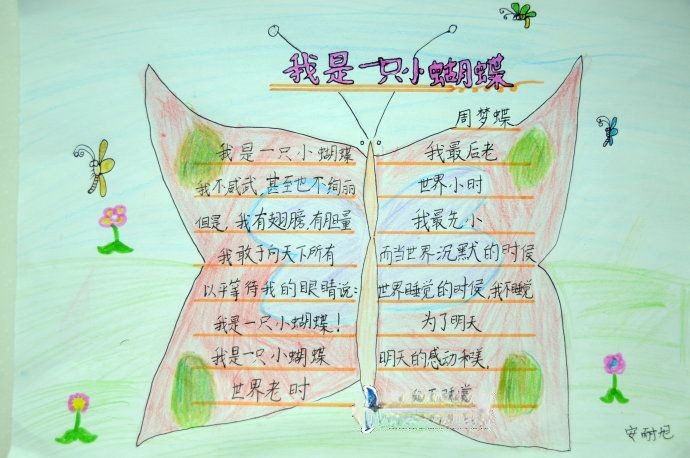 我是一只小蝴蝶
周梦蝶
我是一只小蝴蝶
我不威武,甚至也不绚丽
但是,我有翅膀,有胆量
我敢于向天下所有
以平等待我的眼睛说:
我是一只小蝴蝶!
我是一只小蝴蝶
世界老时
我最后老
世界小时
我最先小
而当世界沉默的时候
世界睡觉的时候,我不睡觉
为了明天
明天的感动和美,
不睡觉
安耐旭